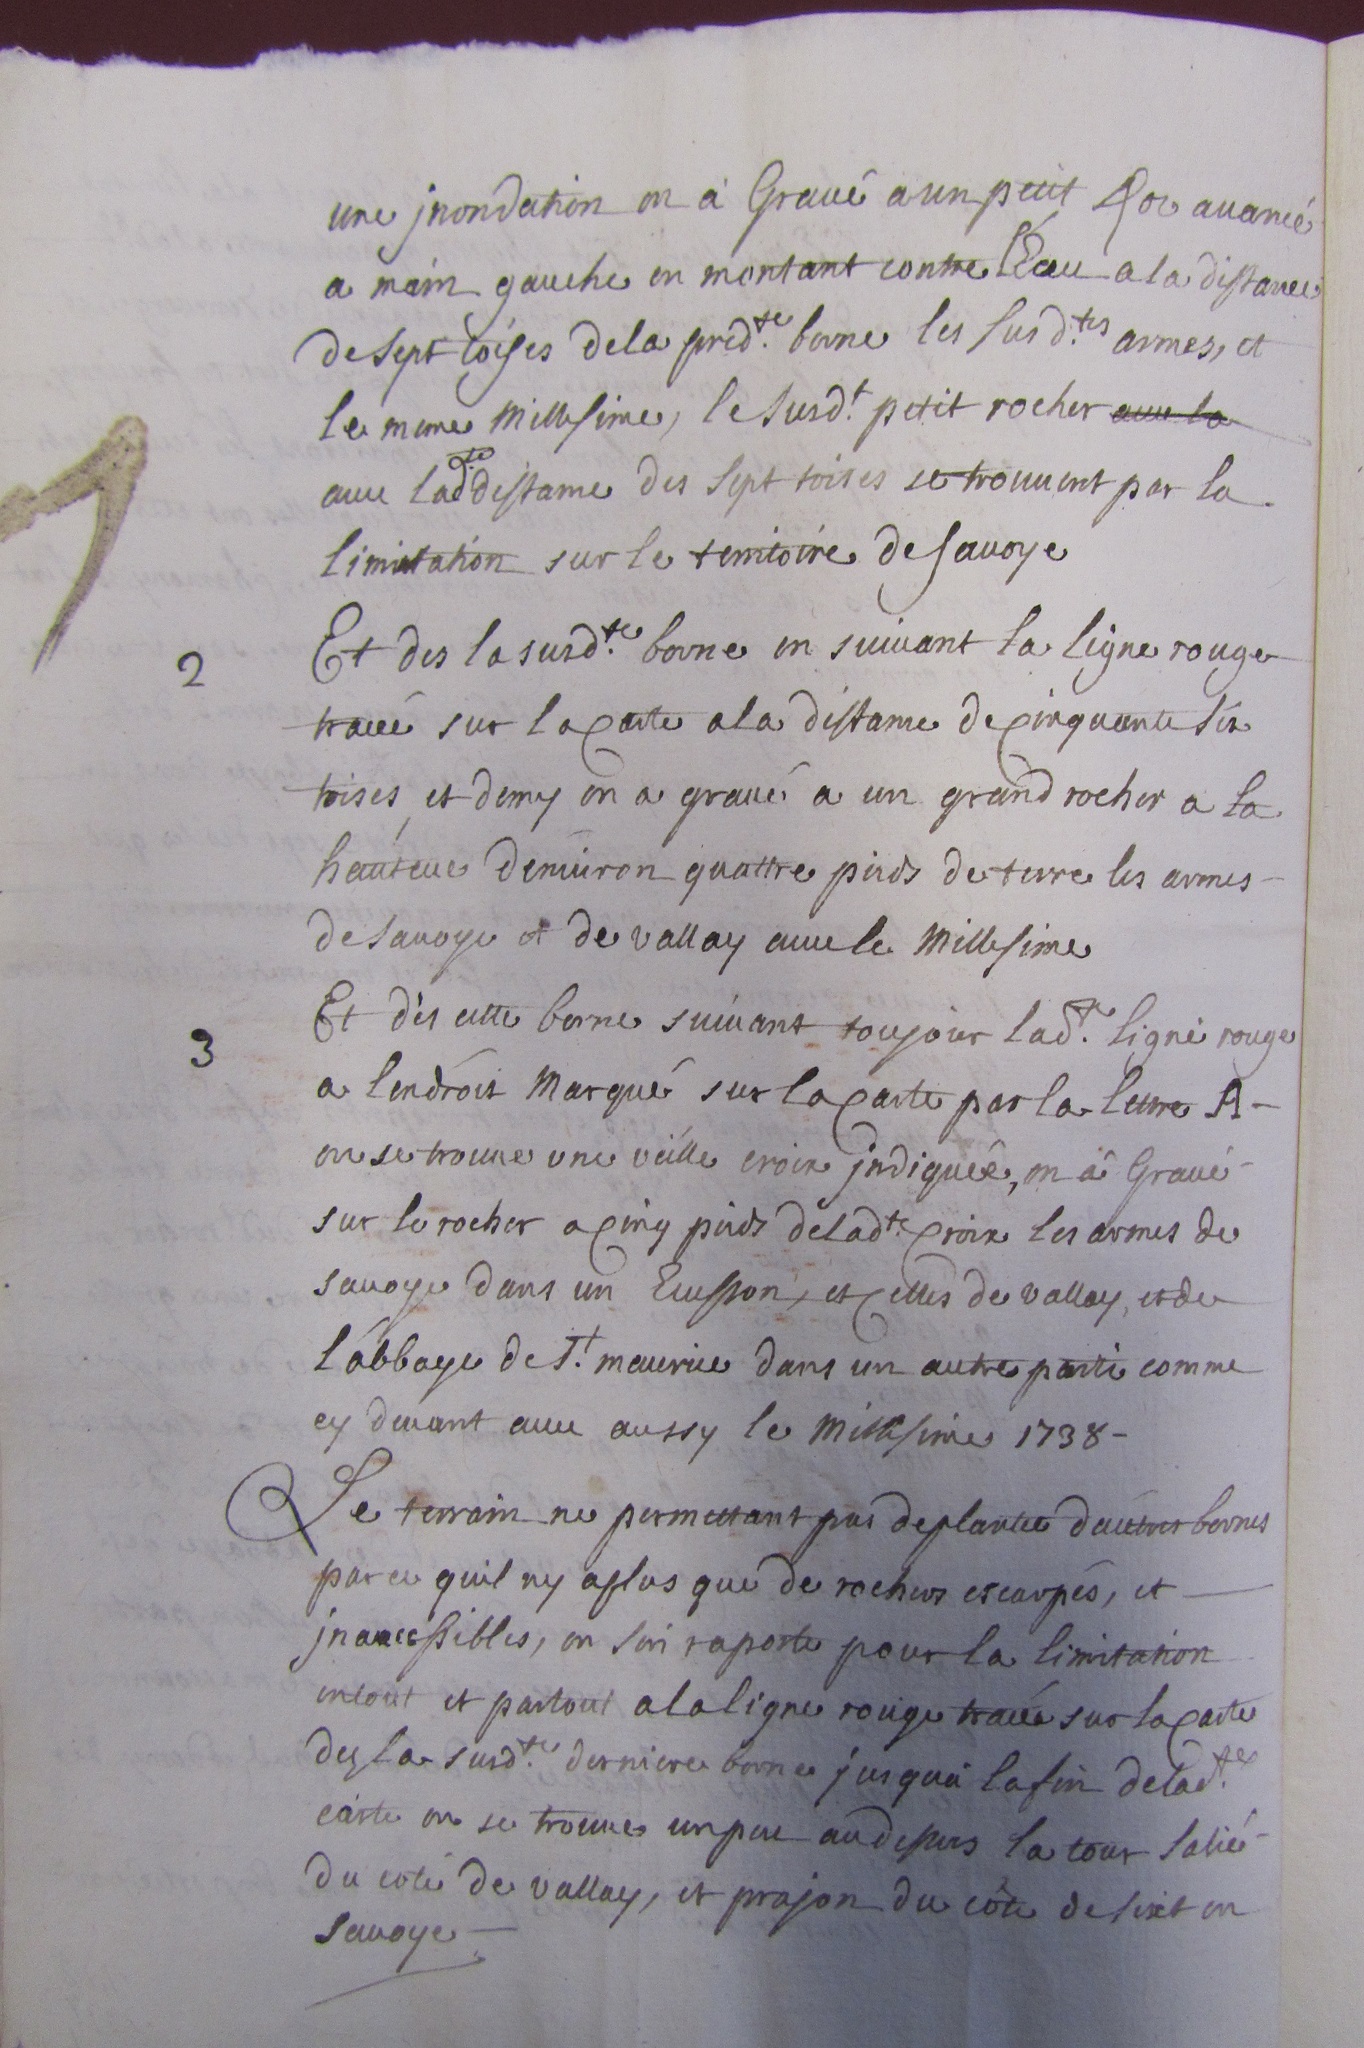 une jnondation on à Gravé a un petit Roc avancé
a main gauche en montant contre l'Eau a la distance
de sept toises dela pred.te borne les susd.tes armes, et
le meme Millesime, le susd.t petit rocher avec la
avec lad.te distance des sept toises se trouvent par la
limitation sur le territoire de Savoye
2 Et des la susd.te borne en suivant la ligne rouge
tracé sur la Carte a la distance de Cinquante six
toises, et demy on a gravé a un grand rocher a la
hauteur denviron quattre pieds de terre les armes
de Savoye et de vallay avec le Millesime
3 Et dès cette borne suivant toujour lad.te ligne rouge
a lendroit Marqué sur la Carte par la lettre A
ou se trouve une veille croix jndiqueé, on à Gravé
sur le rocher a Cinq pieds delad.te Croix les armes de
savoye dans un Ecusson, et Celles de vallay, et de
l'abbaye de S.t maurice dans un autre parti comme
cy devant avec aussy le Millesime 1738
Le terrain ne permettant pas de planter d'autres bornes
parce quil ny a plus que de rochers escarpés, et
jnaccessibles, on sen raporte pour la limitation
entout et partout a la ligne rouge tracée sur la Carte
dez la susd.te derniere borne jusqua la fin delad.te
carte ou se trouve un peu audessus la tour Salié
du coté de vallay, et prajon du côte de sixt en
Savoye